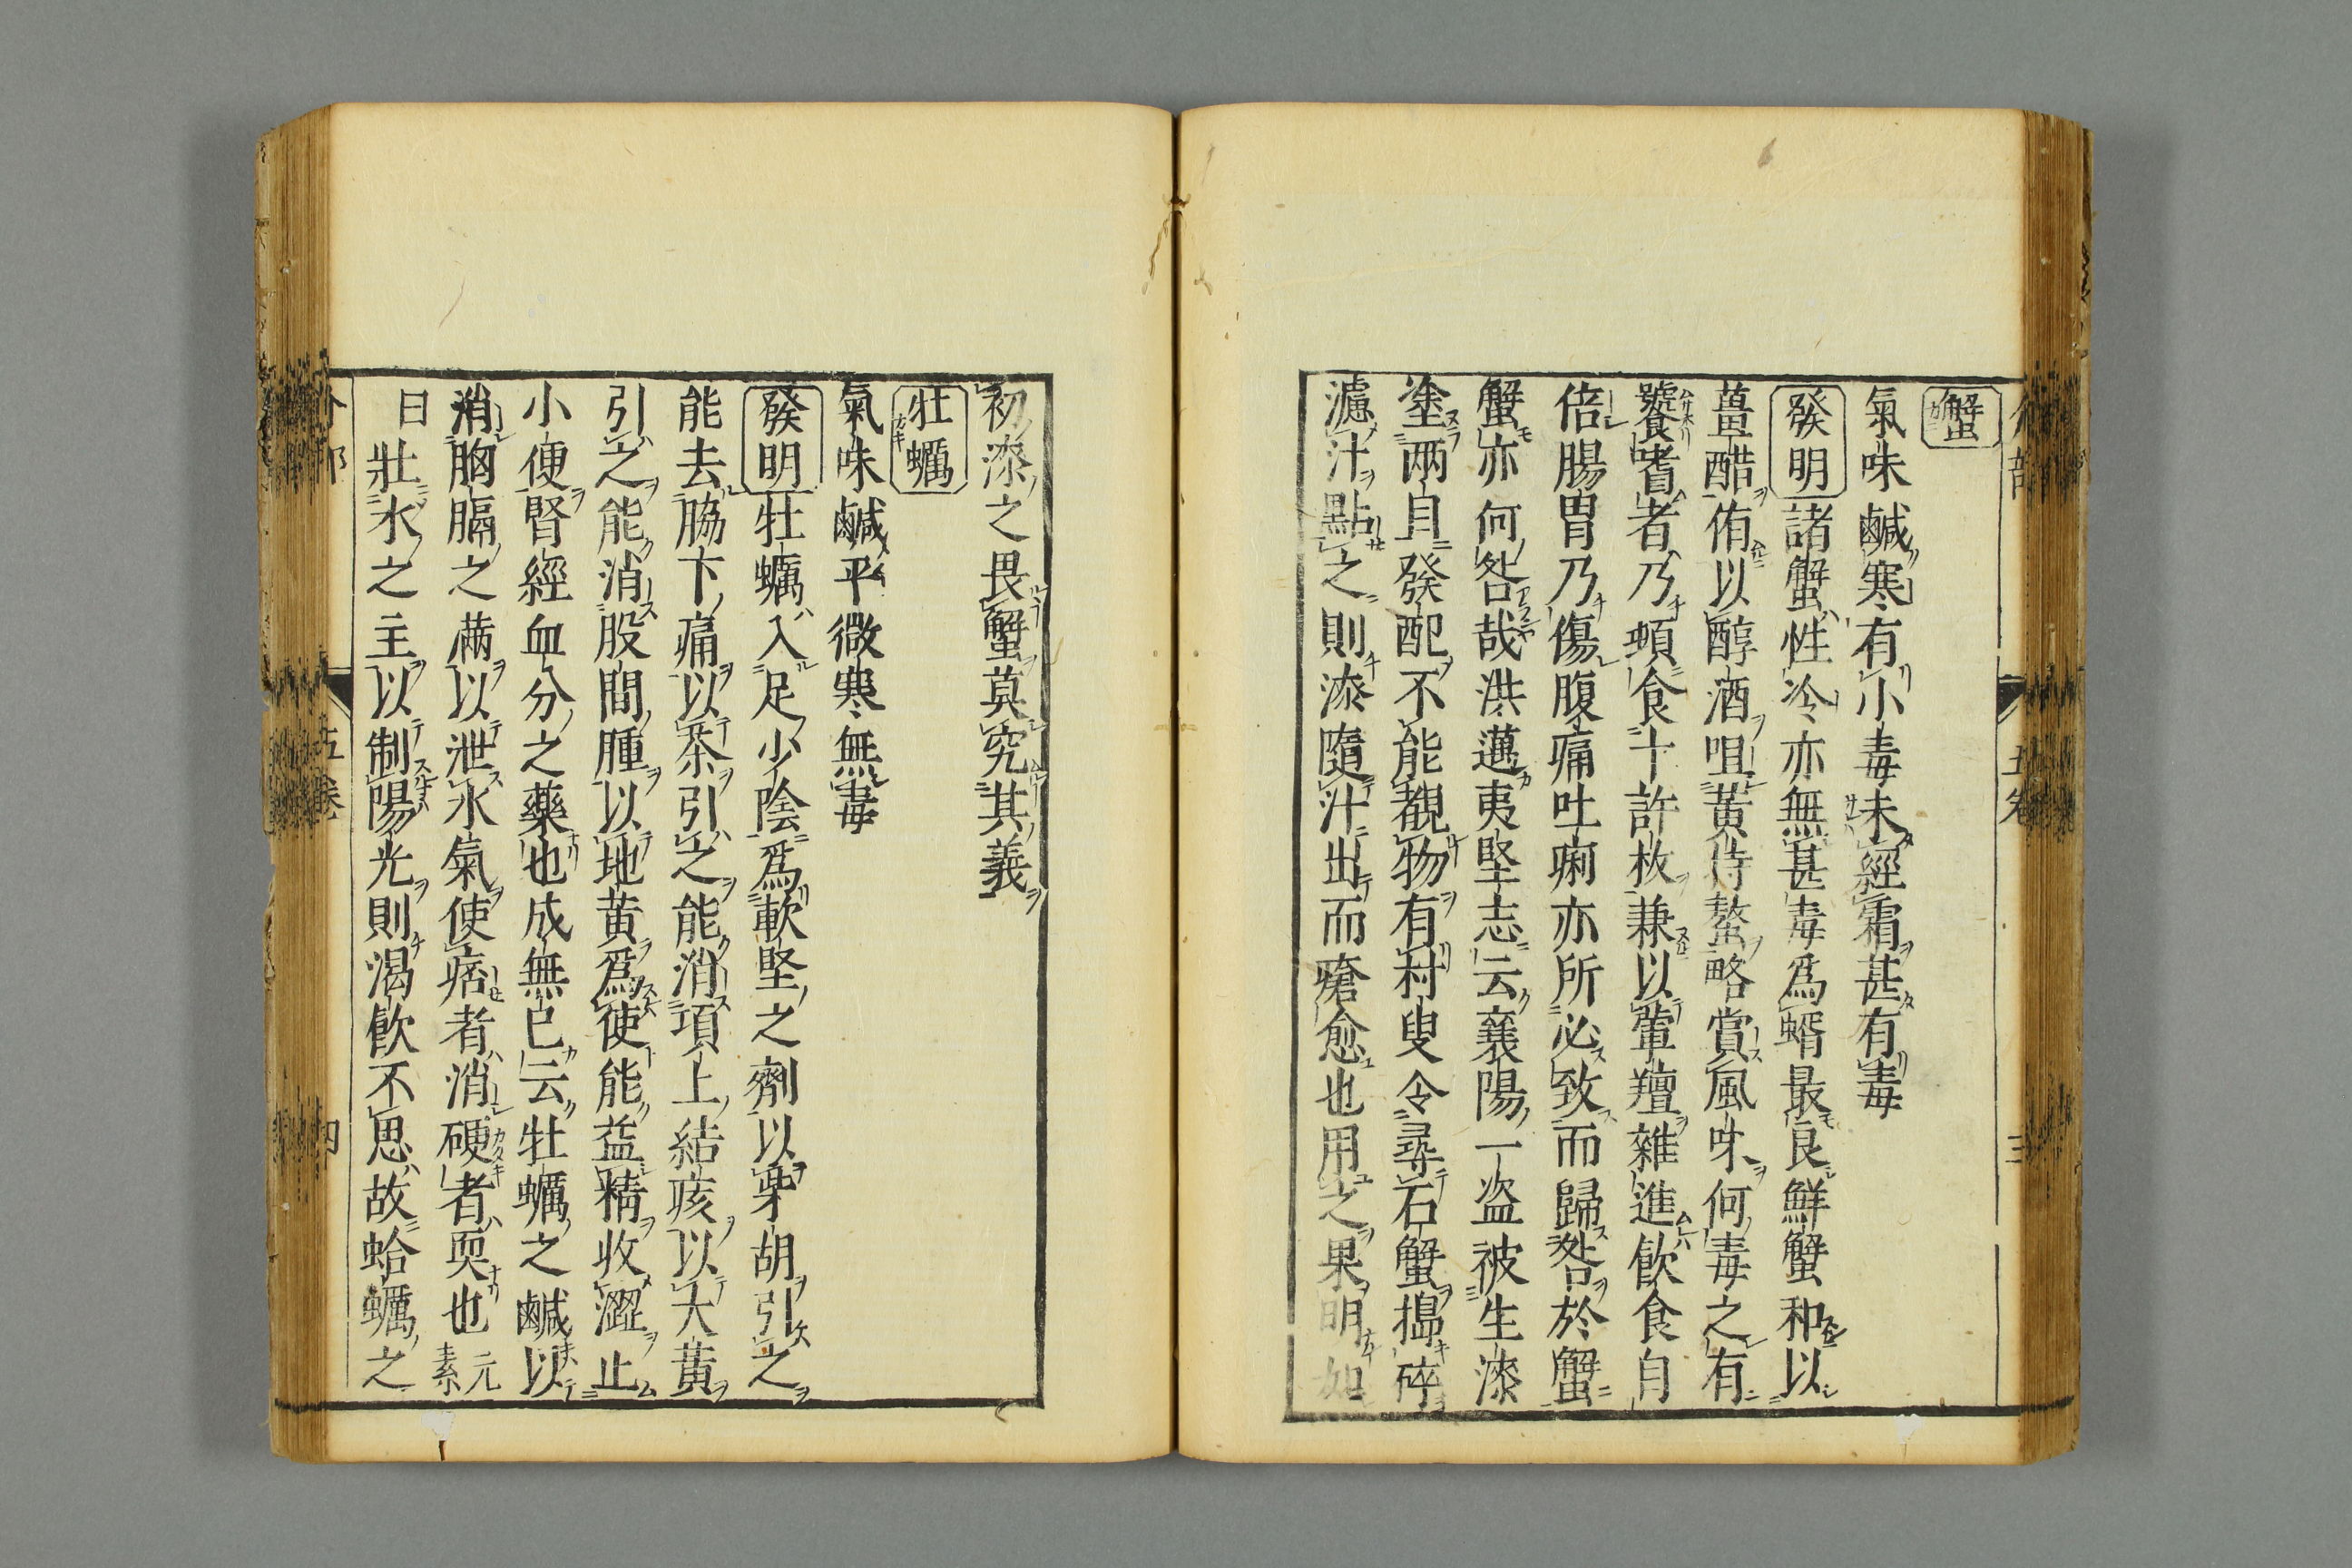 蟹
氣味鹹寒有小毒未經霜甚有毒
發明諸蟹性冷亦無甚毒爲蝑最良鮮蟹和以
薑醋侑以醇酒咀黃持螯略賞風味何毒之有
饕嗜者乃頓食十許枚兼以葷羶雜進飲食自
倍腸胃乃傷腹痛吐痢亦所必致而歸咎於蟹
蟹亦何咎哉洪邁夷堅志云襄陽一盗被生漆
塗兩目發配不能覩物有村叟令尋石蟹搗碎
濾汁點之則漆隨汁出而瘡愈也用之果明如
初漆之畏蟹莫究其義
牡蠣
氣味鹹平微寒無毒
發明牡蠣入足少陰爲軟堅之劑以柴胡引之
能去脇下痛以茶引之能消項上結痎以大黃
引之能消股間腫以地黄爲使能益精收澀止
小便腎經血分之藥也成無已云牡蠣之鹹以
消胸膈之滿以泄水氣使痞者消硬者耎也元素
曰壯水之主以制陽光則渴飲不思故蛤蠣之
五卷